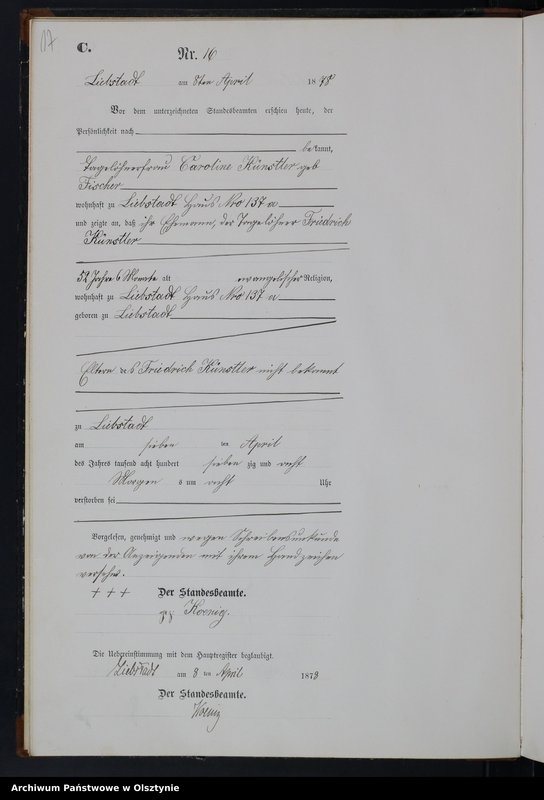 17
C.
Nr. 16
Liebstadt am 8ten April 1878
Vor dem unterzeichneten Standesbeamten erschien heute, der
Persönlichkeit nach
bekannt,
Tagelöhnerfrau Caroline Künstler geb
Fischer
wohnhaft zu Liebstadt Haus Nro 137 a
und zeigte an, daß ihr Ehemann, der Tagelöhner Friedrich
Künstler
52 Jahre 6 Monate alt evangelischer Religion,
wohnhaft zu Liebstadt Haus Nro 137 a
geboren zu Liebstadt
Eltern des Friedrich Künstler nicht bekannt
zu Liebstadt
am sieben ten April
des Jahres tausend acht hundert sieben zig und acht
Morgens um acht Uhr
verstorben sei
Vorgelesen, genehmigt und wegen Schreibensunkunde
von der Anzeigenden mit ihrem Handzeichen
versehn.
+ + +
Der Standesbeamte.
Koenig.
Die Uebereinstimmung mit dem Hauptregister beglaubigt.
Liebstadt am 8 ten April 1878
Der Standesbeamte.
Koenig
Archiwum Państwowe w Olsztynie